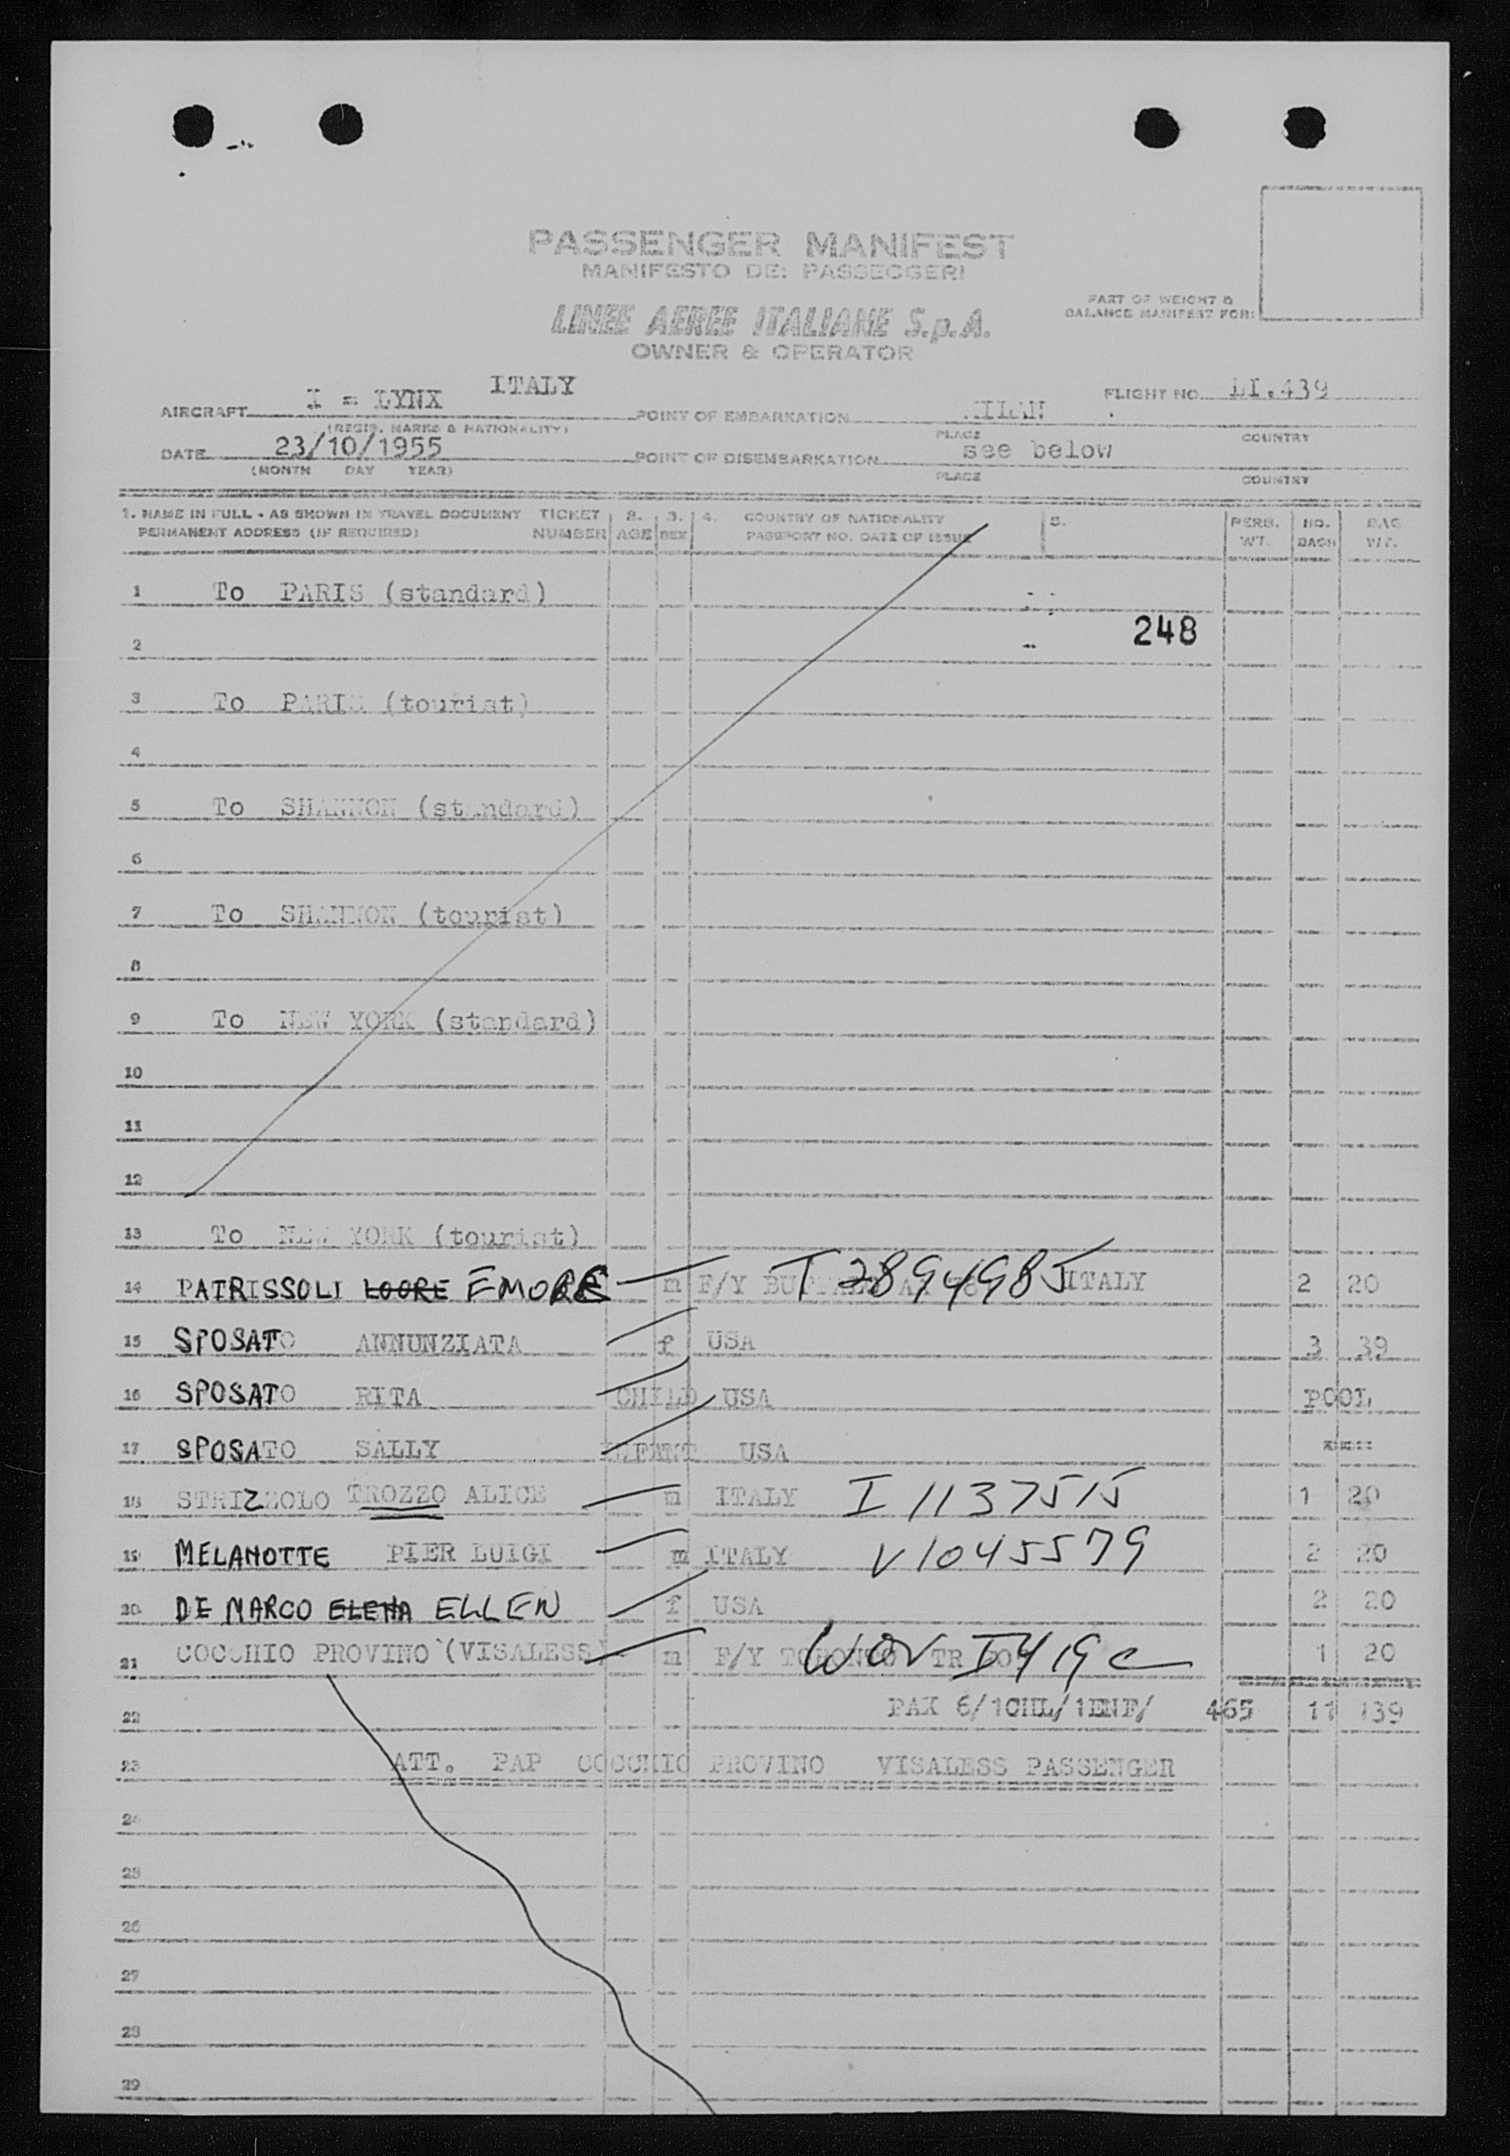 PASSENGER MANIFEST
MANIFESTO DEI PASSEGGERI
LINEE AEREE ITALIANE S.p.A.
OWNER & OPERATOR
PART OF WEIGHT &
BALANCE MANIFEST FOR:
AIRCRAFT I - LYNX ITALY POINT OF EMBARKATION MILAN FLIGHT NO. LI.439
(REGIS. MARKS & NATIONALITY) PLACE COUNTRY
DATE 23/10/1955 POINT OF DISEMBARKATION see below
(MONTH DAY YEAR) PLACE COUNTRY
1. NAME IN FULL - AS SHOWN IN TRAVEL DOCUMENT TICKET 2. 3. 4. COUNTRY OF NATIONALITY 5. PERS. NO. BAG
PERMANENT ADDRESS (IF REQUIRED) NUMBER AGE SEX PASSPORT NO. DATE OF ISSUE WT. BAGS WT.
1 To PARIS (standard)
2 248
3 To PARIS (tourist)
4
5 To SHANNON (standard)
6
7 To SHANNON (tourist)
8
9 To NEW YORK (standard)
10
11
12
13 To NEW YORK (tourist)
14 PATRISSOLI LOORE EMORE m F/Y T 2894985 ITALY 2 20
15 SPOSATO ANNUNZIATA f USA 3 39
16 SPOSATO RITA CHILD USA POOL
17 SPOSATO SALLY INFANT USA
18 STRIZZOLO TROZZO ALICE m ITALY I 1137515 1 20
19 MELANOTTE PIER LUIGI m ITALY V1045579 2 20
20 DE MARCO ELENA ELLEN f USA 2 20
21 COCCHIO PROVINO (VISALESS) m F/Y TORONTO TR WOV I419c 1 20
22 PAX 6/1CHL/1INF/ 465 11 139
23 ATT. PAP COCCHIO PROVINO VISALESS PASSENGER
24
25
26
27
28
29